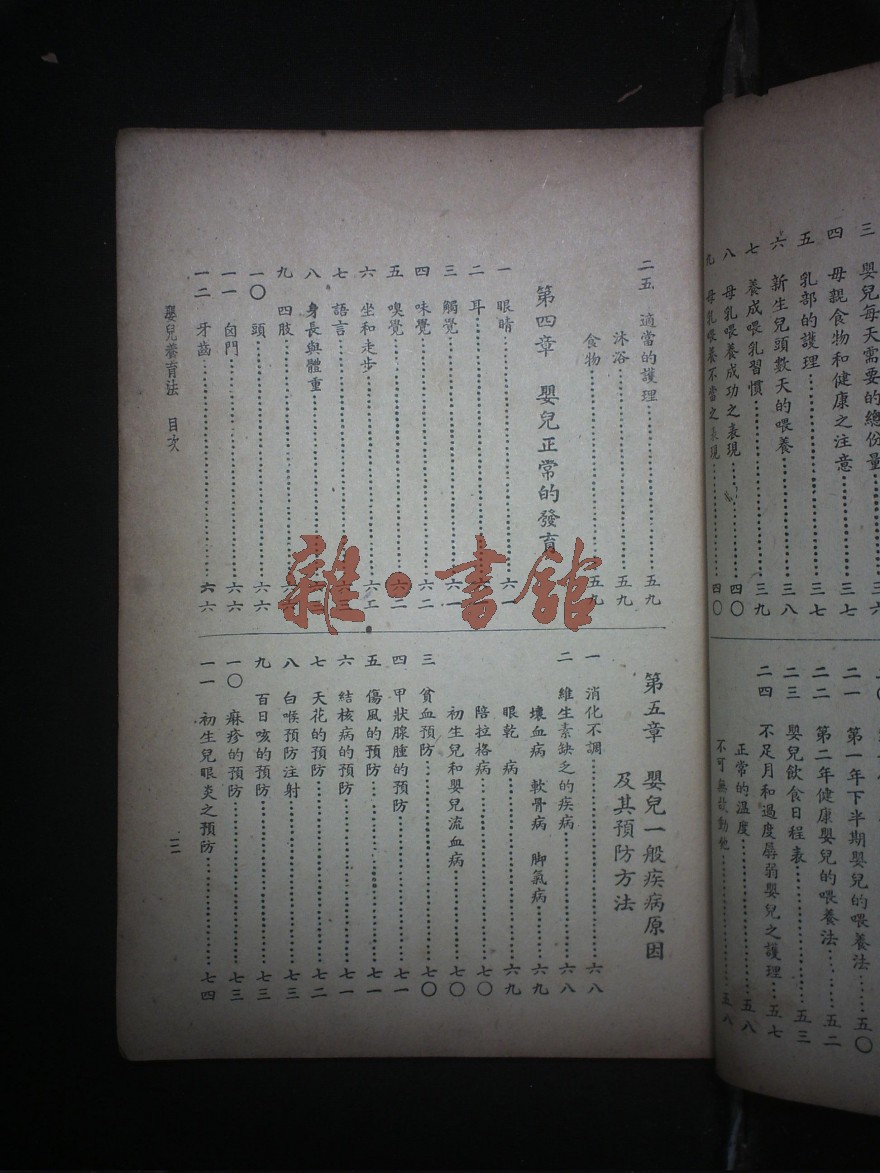 三 嬰兒每天需要的總份量……三六
四 母親食物和健康之注意……三七
五 乳部的護理……三七
六 新生兒頭數天的喂養……三八
七 養成喂乳習慣……三九
八 母乳喂養成功之表現……四〇
九 母乳喂養不當之表現……四〇
二一 第一年下半期嬰兒的喂養法……五〇
二二 第二年健康嬰兒的喂養法……五二
二三 嬰兒飲食日程表……五三
二四 不足月和過度孱弱嬰兒之護理……五七
正常的溫度……五八
不可無故動他……五八
二五 適當的護理……五九
沐浴……五九
食物……五九
第四章 嬰兒正常的發育
一 眼睛……六一
二 耳……六
三 觸覺……六一
四 味覺……六二
五 嗅覺……六二
六 坐和走步……六二
七 語言……六
八 身長與體重……六
九 四肢……六
一〇 頭……六六
一一 囟門……六六
一二 牙齒……六六
第五章 嬰兒一般疾病原因
及其預防方法
一 消化不調……六八
二 維生素缺乏的疾病……六八
壞血病 軟骨病 脚氣病……六九
眼乾病……六九
陪拉格病……七〇
初生兒和嬰兒流血病……七〇
三 貧血預防……七〇
四 甲狀腺腫的預防……七一
五 傷風的預防……七一
六 結核病的預防……七一
七 天花的預防……七二
八 白喉預防注射……七三
九 百日咳的預防……七三
一〇 痳疹的預防……七三
一一 初生兒眼炎之預防……七四
嬰兒養育法 目次
三
雜·書館